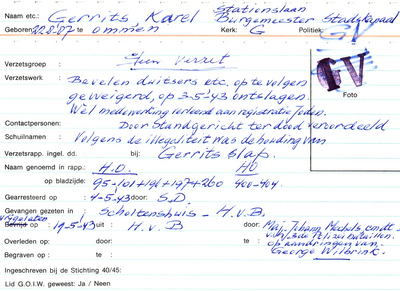 Stationslaan
Naam etc.: Gerrits, Karel Burgemeester Stadskanaal
Geboren: 22.8.'07 te Ommen Kerk: G Politiek:
SV
Verzetsgroep : Geen Verzet
GV
Foto
Verzetswerk : Bevelen duitsers etc. op te volgen
geweigerd, op 3-5-43 ontslagen.
Wel medewerking verleend aan registratie Joden.
Contactpersonen: Door Standgericht ter dood veroordeeld
Schuilnamen : Volgens de illegaliteit was de houding van
Verzetsrapp. ingel. dd. bij: Gerrits slap.
Naam genoemd in rapp.: H.O. HO
op bladzijde: 95-101+196+197+200 400-404.
Gearresteerd op : 4-5-43 door: S.D.
Gevangen gezeten in : Scholtenshuis - H.v.B.
vrijgelaten
Bevrijd op : 19-5-43 uit : H.v.B door: Maj. Johann
v.h. 3de Polizeibataillon.
Overleden op: door: te : op aandringen van
Begraven op : te : George Wilbrink.
Ingeschreven bij de Stichting 40/45:
Lid G.O.I.W. geweest: Ja / Neen